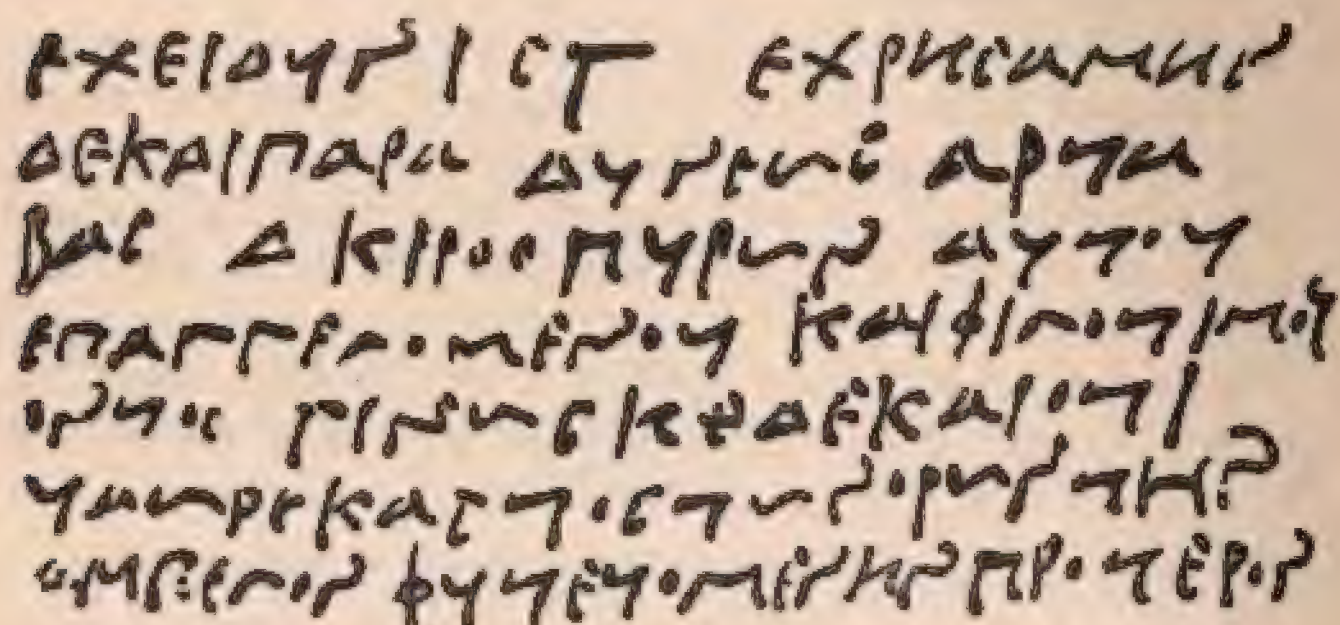 εχειδυνις τ εχρησαμην
δεκαιπαρα δυνεως αρτα
βας δ κριθοπυρων αυτου
επαγγελομενου καιφιλοτιμου
οντος γινωσκεδεκαιοτι
υδωρεκαστοστωνορωντην
αμπελονφυτευομενηνπροτερον